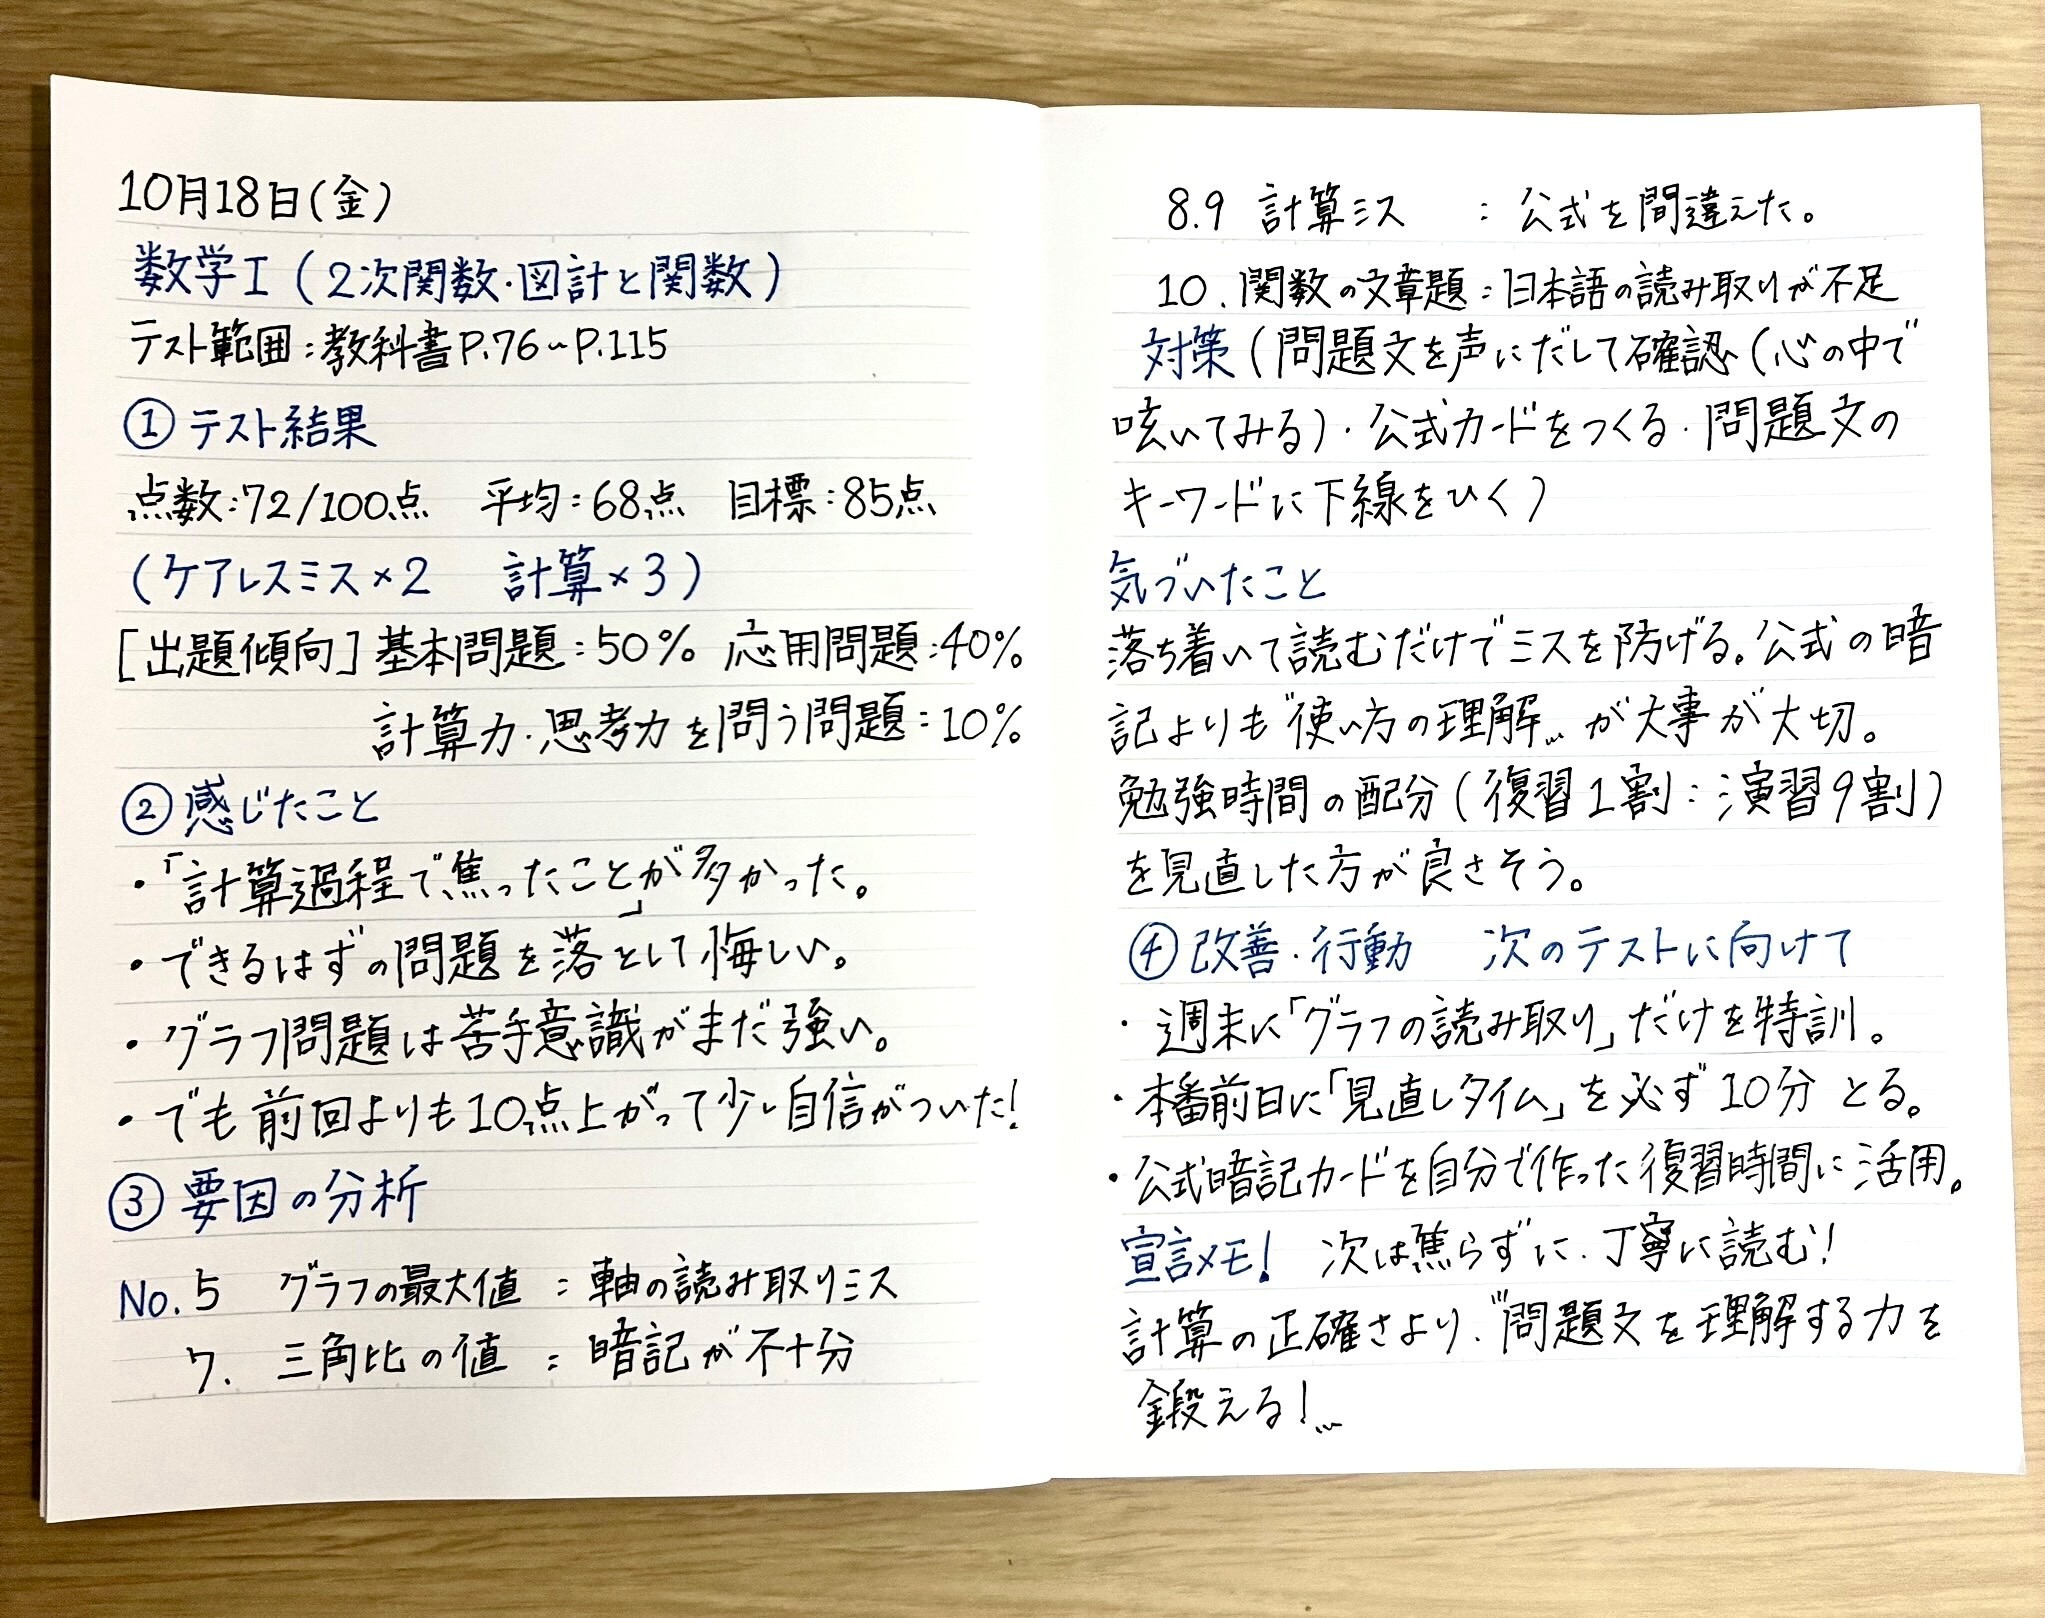 10月18日(金)
数学I(2次関数・図計と関数)
テスト範囲:教科書P.76~P.115
① テスト結果
点数:72/100点 平均:68点 目標:85点
(ケアレスミス×2 計算×3)
[出題傾向] 基本問題:50% 応用問題:40%
計算力・思考力を問う問題:10%
② 感じたこと
・「計算過程で焦ったこと」が多かった。
・できるはずの問題を落として悔しい。
・グラフ問題は苦手意識がまだ強い。
・でも前回よりも10点上がって少し自信がついた!
③ 要因の分析
No.5 グラフの最大値 : 軸の読み取りミス
7. 三角比の値 : 暗記が不十分
8.9 計算ミス : 公式を間違えた。
10. 関数の文章題:日本語の読み取りが不足
対策(問題文を声にだして確認(心の中で
呟いてみる)・公式カードをつくる・問題文の
キーワードに下線をひく)
気づいたこと
落ち着いて読むだけでミスを防げる。公式の暗
記よりも〝使い方の理解〟が大事が大切。
勉強時間の配分(復習1割:演習9割)
を見直した方が良さそう。
④ 改善・行動 次のテストに向けて
・週末に「グラフの読み取り」だけを特訓。
・本番前日に「見直しタイム」を必ず10分とる。
・公式暗記カードを自分で作った復習時間に活用。
宣言メモ! 次は焦らずに、丁寧に読む!
計算の正確さより、〝問題文を理解する力を
鍛える!〟